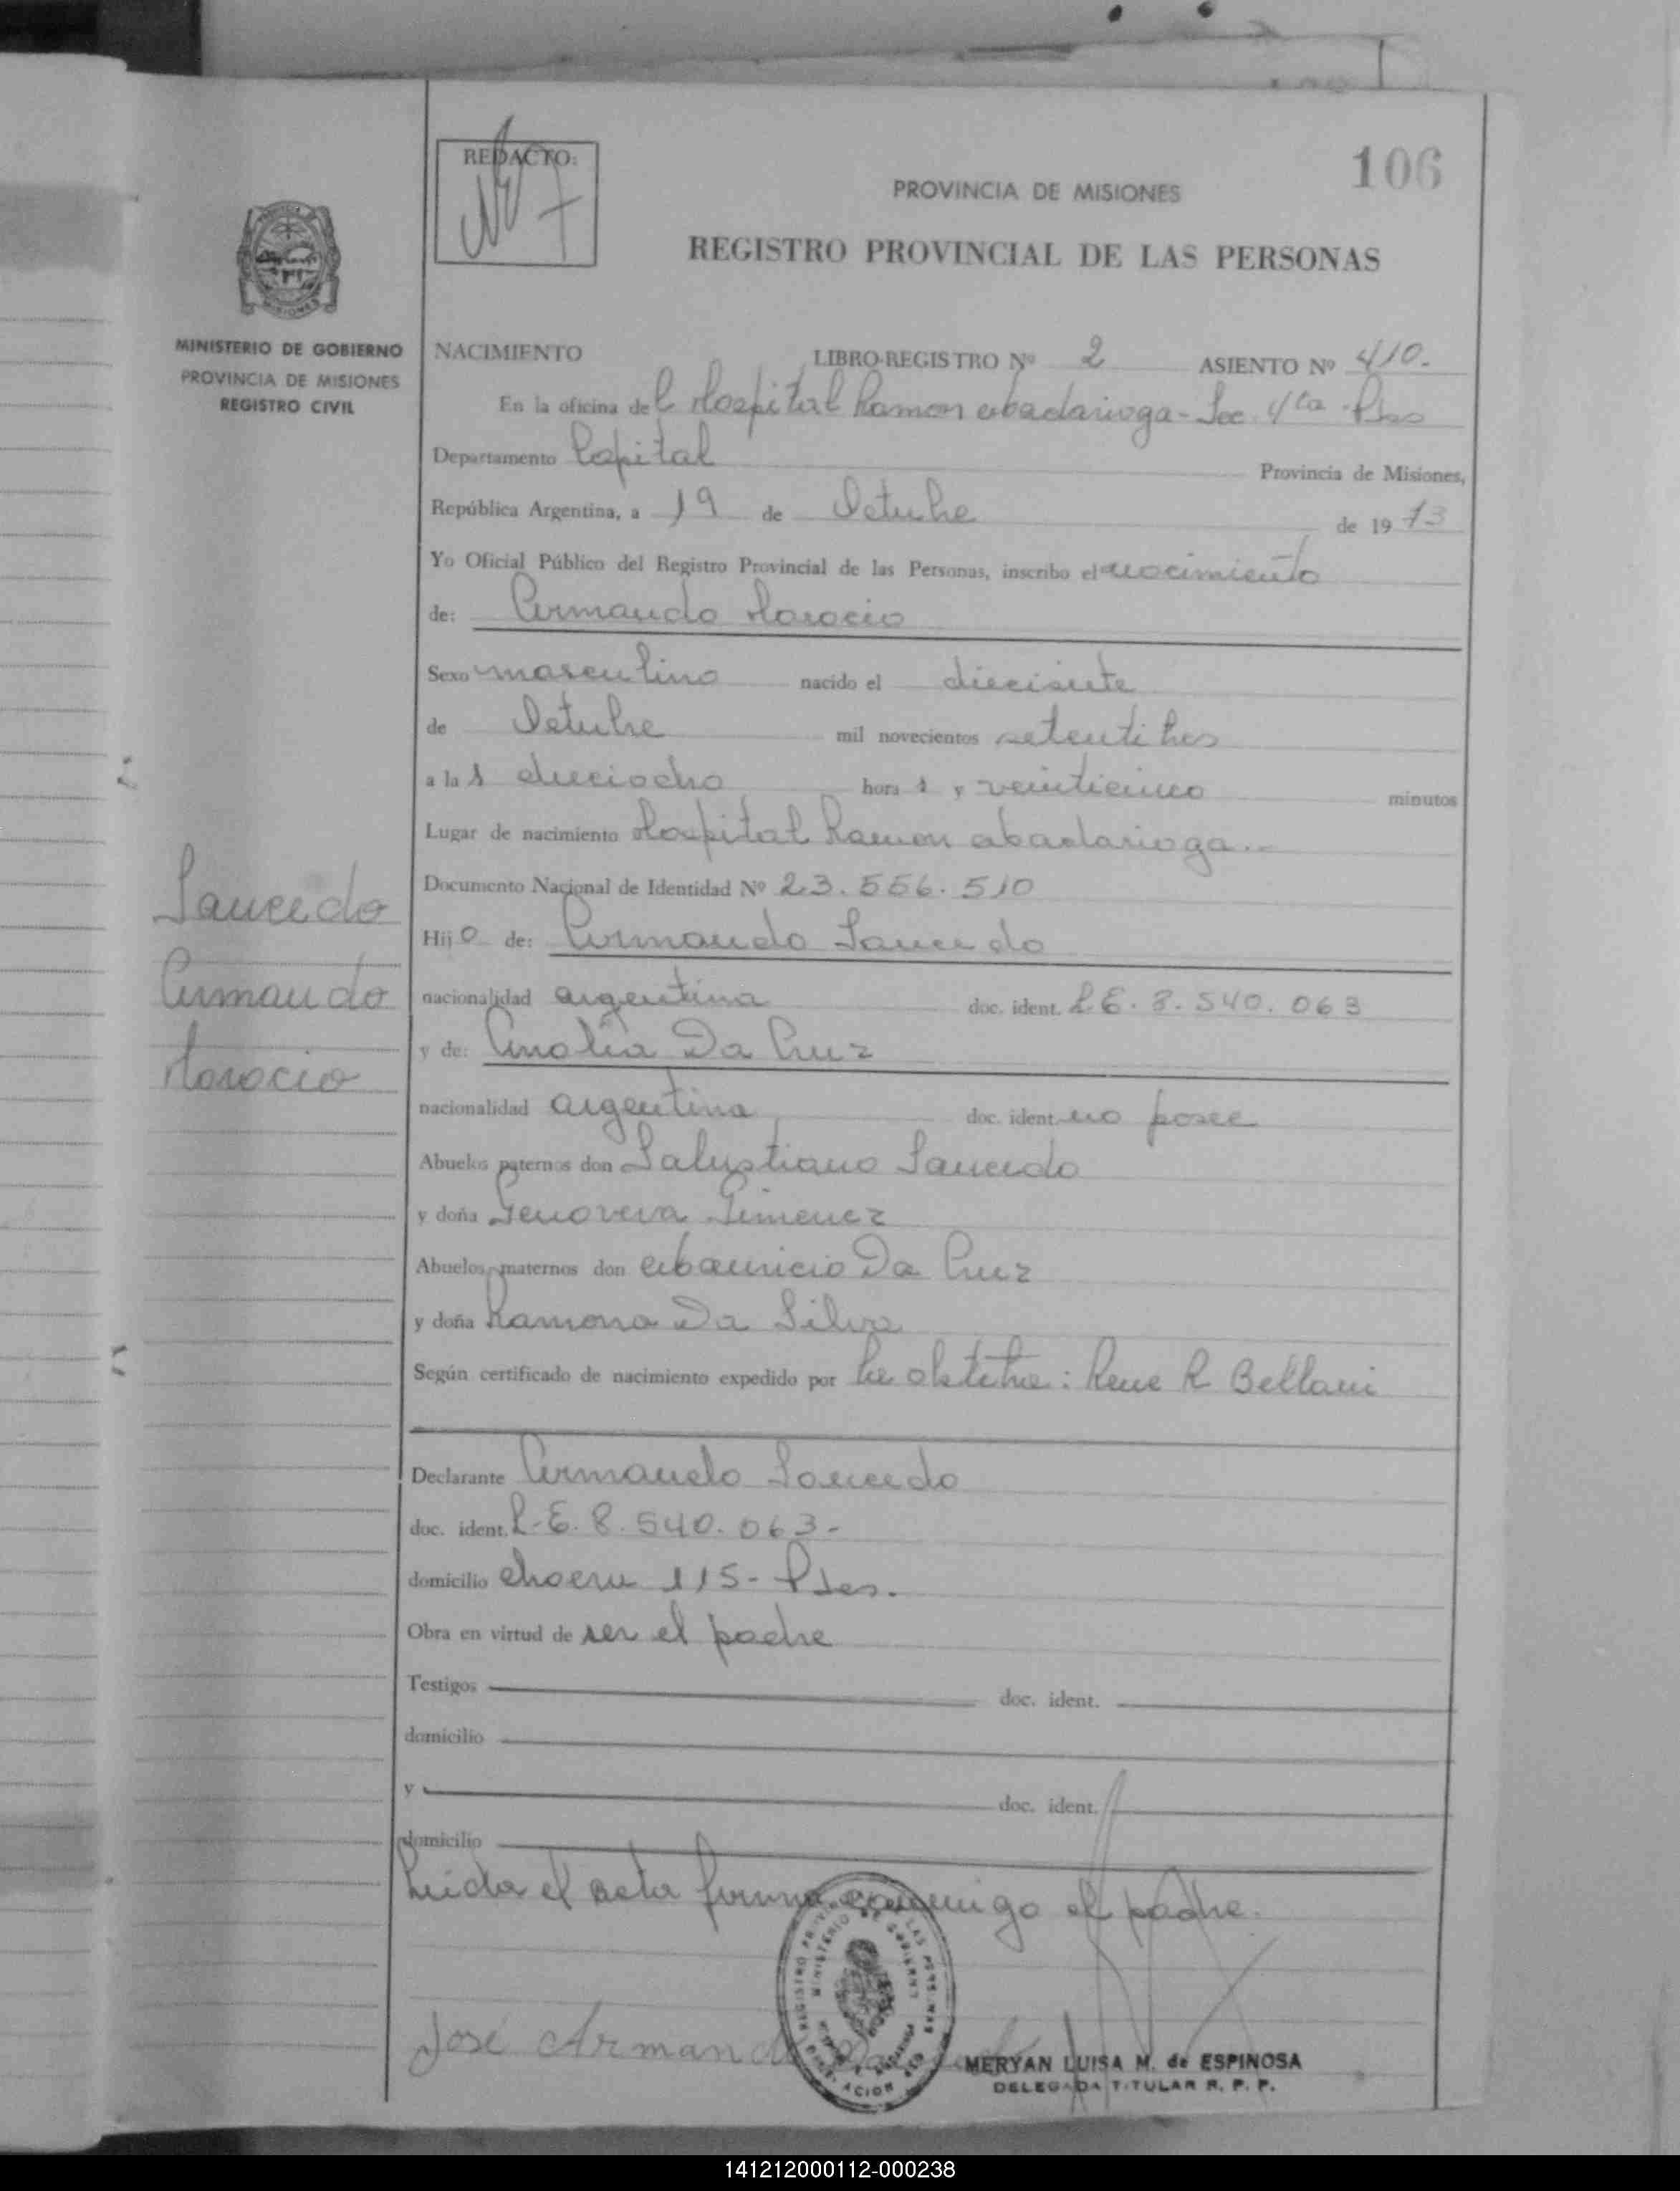 106
REDACTO:
PROVINCIA DE MISIONES
REGISTRO PROVINCIAL DE LAS PERSONAS
MINISTERIO DE GOBIERNO
PROVINCIA DE MISIONES
REGISTRO CIVIL
NACIMIENTO LIBRO-REGISTRO Nº 2 ASIENTO Nº 410.-
En la oficina del Hospital Ramon abadarioga - Sec. 4ta Pdas
Departamento Capital Provincia de Misiones,
República Argentina, a 19 de Octubre de 1973
Yo Oficial Público del Registro Provincial de las Personas, inscribo el nacimiento
de: Armando Horacio
Sexo masculino nacido el diecisiete
de Octubre mil novecientos setentitres
a las dieciocho horas y veinticinco minutos
Lugar de nacimiento Hospital Ramon abadarioga.-
Documento Nacional de Identidad Nº 23.556.510
Hijo de: Armando Saucedo
nacionalidad argentina doc. ident. L.E. 8.540.063
y de: Analia Da Cruz
nacionalidad argentina doc. ident. no posee
Abuelos paternos don Salustiano Saucedo
y doña Genoveva Gimenez
Abuelos maternos don Da Cruz
y doña Ramona Da Silva
Según certificado de nacimiento expedido por la obstetra: Rene R Bellani
Declarante Armando Saucedo
doc. ident. L.E. 8.540.063-
domicilio 115- Pdas.
Obra en virtud de ser el padre
Testigos doc. ident.
domicilio
y doc. ident.
domicilio
Leida el acta firma conmigo el padre.
Saucedo
Armando
Horacio
José Armando
MERYAN LUISA M. de ESPINOSA
DELEGADA TITULAR R. P. P.
141212000112-000238